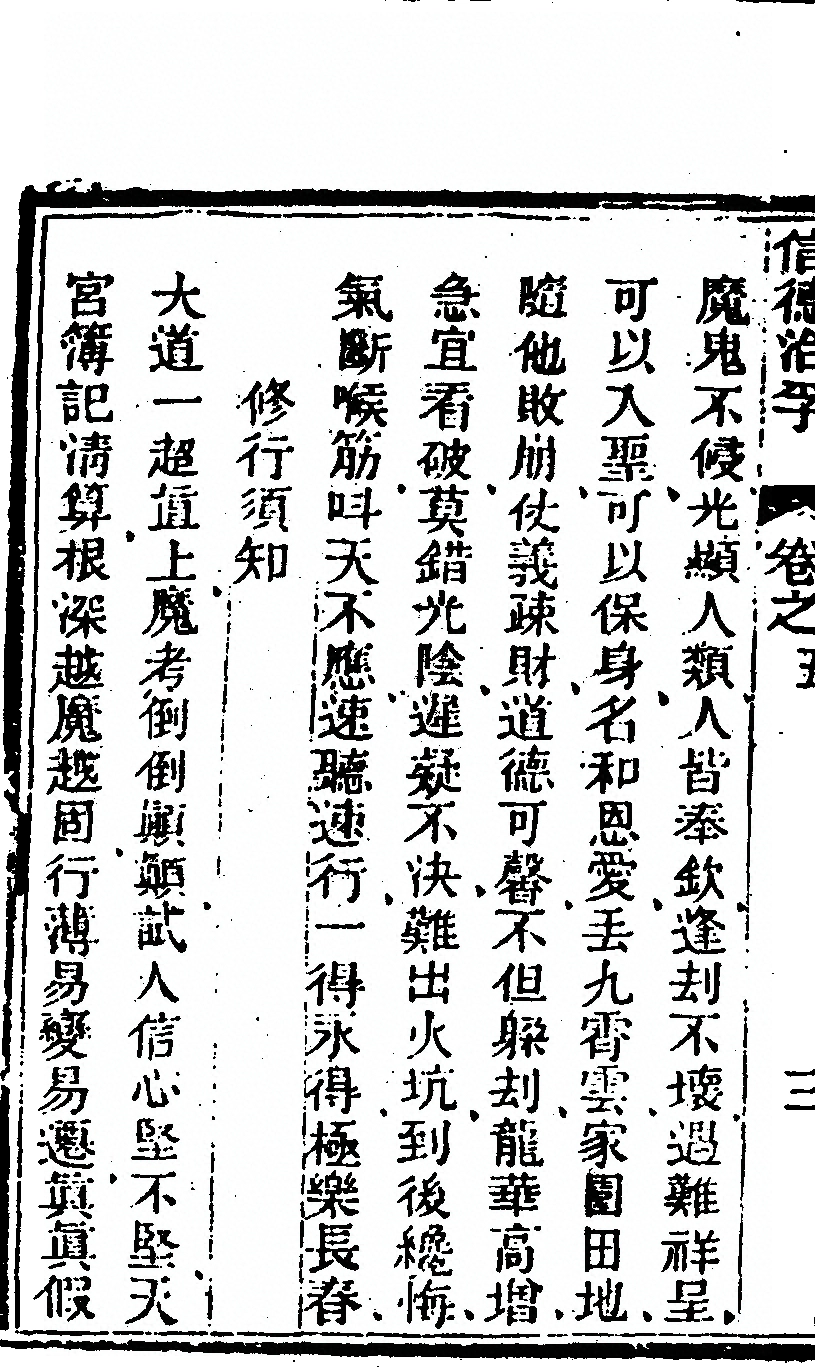 信德治孚 卷之五 三
魔鬼不侵、光顯人類、人皆奉欽、逢刦不壞、遇難祥呈、
可以入聖、可以保身、名和恩愛、丟九霄雲、家園田地、
隨他敗崩、仗義疎財、道德可馨、不但躱刦、龍華高增、
急宜看破、莫錯光陰、遲疑不決、難出火坑、到後纔悔、
氣斷喉筋、呌天不應、速聽速行、一得永得、極樂長春、
修行須知
大道一超直上、魔考倒倒顛顛、試人信心堅不堅、天
宮簿記清算、根深越魔越固、行薄易變易遷、眞眞假